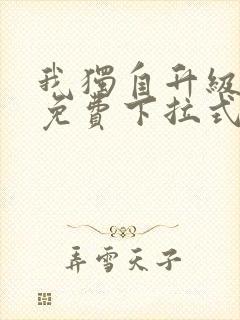 我獨自升級
免費下拉式
弄雪天子